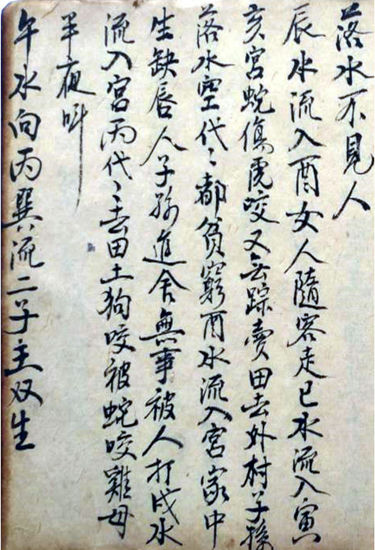 落水不見人
辰水流入酉女人隨客走巳水流入寅
亥宮蛇傷虎咬又去踪賣田去外村子孫
落水空代〻都貧窮酉水流入宮家中
生缺唇人子孫進舍無事被人打戌水
流入宮丙代〻去田土狗咬被蛇咬雞母
半夜叫
午水向丙巽流二子主双生